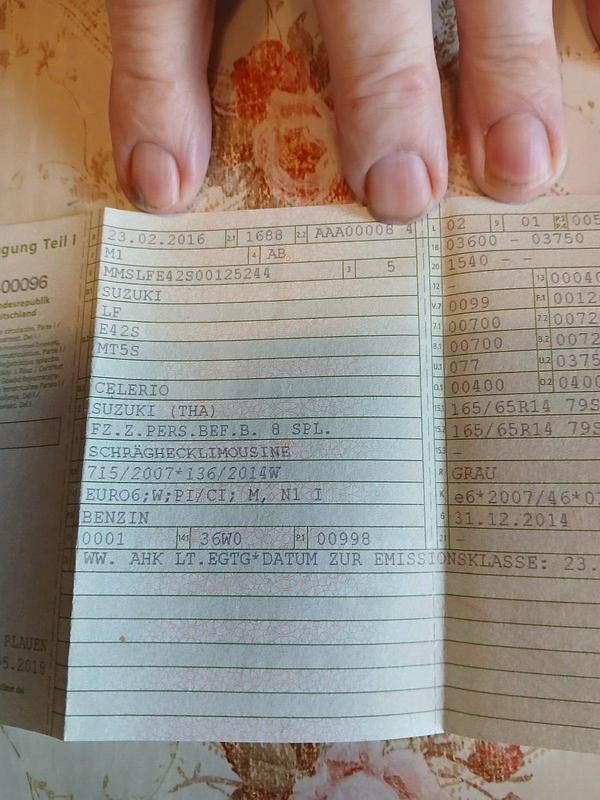 gung Teil I
00096
desrepublik
utschland
PLAUEN
05.2018
B 23.02.2016 2.1 1688 2.2 AAA00008 4
M1 4 AB
MMSLFE42S00125244 3 5
SUZUKI
LF
E42S
MT5S
CELERIO
SUZUKI (THA)
FZ.Z.PERS.BEF.B. 8 SPL.
SCHRÄGHECKLIMOUSINE
715/2007*136/2014W
EURO6;W;PI/CI; M, N1 I
BENZIN
0001 14.1 36W0 P.1 00998
WW. AHK LT.EGTG*DATUM ZUR EMISSIONSKLASSE: 23.
L 02 9 01 P.2 P.4 005
18 03600 - 03750
20 1540 - -
12 - 13 0004
V.7 0099 F.1 0012
7.1 00700 7.2 0072
8.1 00700 8.2 0072
U.1 077 U.2 0375
O.1 00400 O.2 0400
15.1 165/65R14 79S
15.2 165/65R14 79S
15.3 -
R GRAU
K e6*2007/46*0
6 31.12.2014
21 -